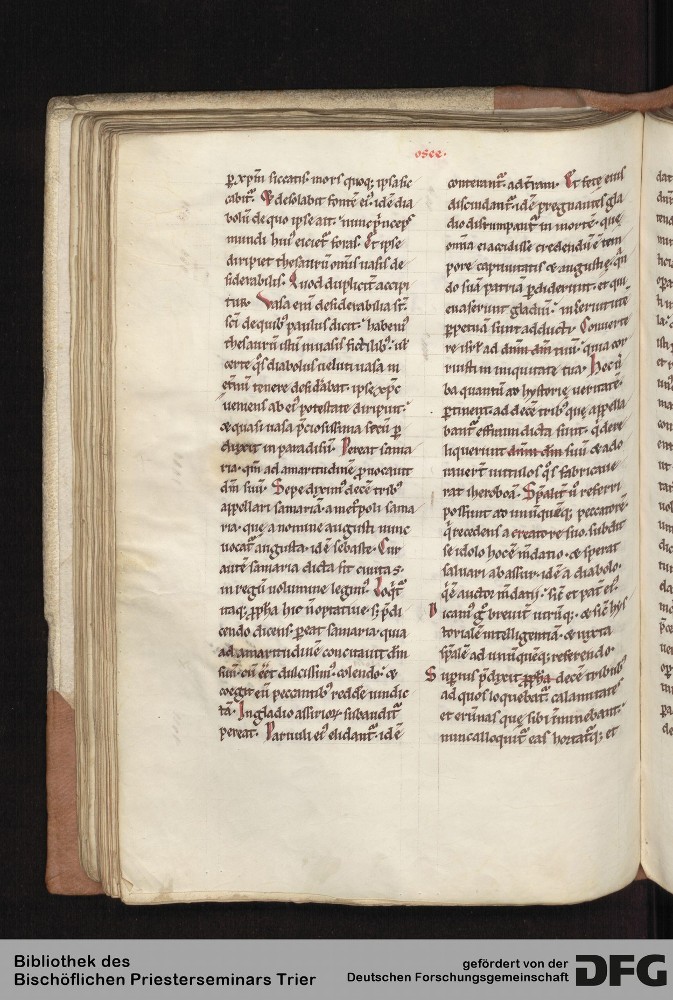 osee.
p̱ xp̄m siccatis. mors quoq; ipsa sic
cabit᷑. Et desolabit fontē eiꝰ. idē dia
bolū de quo ipse ait. nunc p̄nceps
mundi huiꝰ eiciet᷑ foras. Et ipse
diripiet thesaurū om̄is uasis de
siderabilis. Quod dupliciter accipi
tur. Vasa enī desiderabilia st̄.
sc̄i de quibꝰ paulus dicit. habemꝰ
thesaurū istū in uasis fictilibꝰ. uł
certe q̄s diabolus ueluti uasa in
et̄nū tenere desid̄abat. ipse xp̄c
ueniens ab eiꝰ potestate diripuit.
& quasi uasa p̄ciosissima secū p̱
duxit in paradisū. Pereat sama
ria. qm̄ ad amaritudinē prouocauit
dm̄ suū. Sepe diximꝰ decē tribꝰ
appellari samariā. a met᷑poli sama
ria. que a nomine augusti nunc
uocat᷑ augusta. idē sebaste. Cur
autē samaria dicta sit ciuitas.
in regū uolumine legimꝰ. Loq̄t᷑
itaq; ppħa hic n̄ optatiue. s; p̄di
cendo dicens. pereat samaria. quia
ad amaritudinē concitauit dm̄
suū. cū eēt dulcissimꝰ. colendo. &
coegit eū peccantibꝰ redde uindic
tā. In gladio assirioꝝ. subaudit᷑
pereat. Paruuli eiꝰ elidant᷑. idē
conterant᷑. ad t̄ram. Et fete eius
discindant᷑. idē pregnantes gla
dio disrumpant᷑ in mortē. que
om̄ia ei accidisse credendū ē tem
pore captiuitatis & angustie. qn̄
do suā patriā p̱diderunt. et qui
euaserunt gladiū. in seruitutē
p̱petuā sunt adducti. Conuerte
re isrł ad dnm̄ dm̄ tuū. quia cor
ruisti in iniquitate tua. Hoc u̇
ba quantū ad hystorie ueritatē.
p̱tinent. ad decē tribꝰ que appella
bant᷑ effraim dicta sunt. q̄ dere
liquerunt dnm̄ dm̄ suū & ado
rauerт uitulos q̄s fabricaue
rat iheroboā. Sp̄alit᷑ u̇ referri
possunt ad unūquēq; peccatorē.
q̄ recedens a creatore suo. subdit
se idolo hoc ē mdatio. & sperat
saluari ab assur. idē a diabolo.
q̄ ē auctor mdatii. sic̄ et pat᷑ eiꝰ.
Dicamꝰ g̊ breuit᷑ utrūq;. & sic̄ hys
torialē intelligentiā. & iuxta
sp̄alē ad unūquēq; referendo.
Supriꝰ p̄dixit ppħa decē tribubꝰ
ad quos loquebat᷑. calamitates
et erūnas que sibi inminebant.
nunc alloquit᷑ eas hortat᷑q; et
Bibliothek des
Bischöflichen Priesterseminars Trier
gefördert von der
Deutschen Forschungsgemeinschaft
DFG